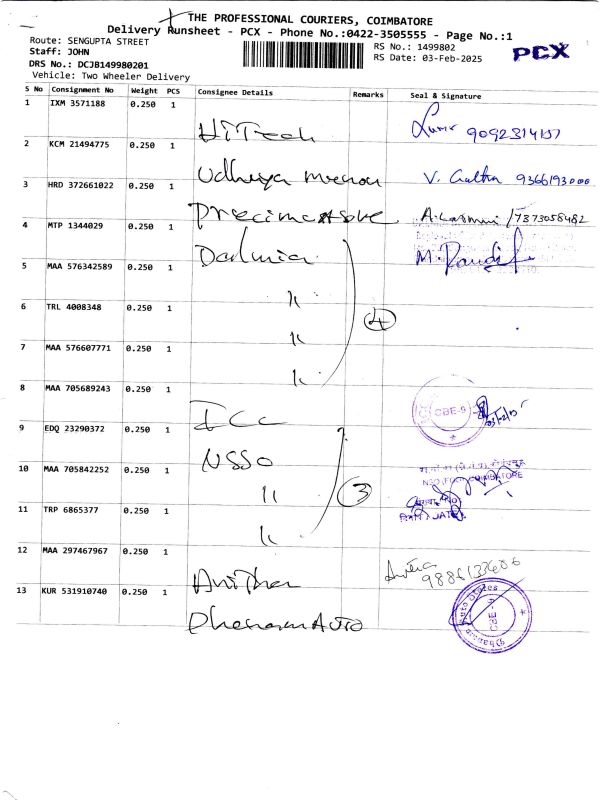 THE PROFESSIONAL COURIERS, COIMBATORE
Delivery Runsheet - PCX - Phone No.:0422-3505555 - Page No.:1
Route: SENGUPTA STREET
RS No.: 1499802
PCX
Staff: JOHN
RS Date: 03-Feb-2025
DRS No.: DCJB149980201
Vehicle: Two Wheeler Delivery
S No Consignment No Weight PCS Consignee Details Remarks Seal & Signature
1 IXM 3571188 0.250 1
HiTech 9092314157
2 KCM 21494775 0.250 1
Udhaya V. 9366193000
3 HRD 372661022 0.250 1
A. /7373058482
4 MTP 1344029 0.250 1
Dalmia M.
5 MAA 576342589 0.250 1
"
6 TRL 4008348 0.250 1
4
"
7 MAA 576607771 0.250 1
"
8 MAA 705689243 0.250 1
ICC CBE-9
9 EDQ 23290372 0.250 1
NSSO
10 MAA 705842252 0.250 1
COIMBATORE
" 3
11 TRP 6865377 0.250 1
"
12 MAA 297467967 0.250 1
Anitha 9886133686
13 KUR 531910740 0.250 1
Dhanam AUTO